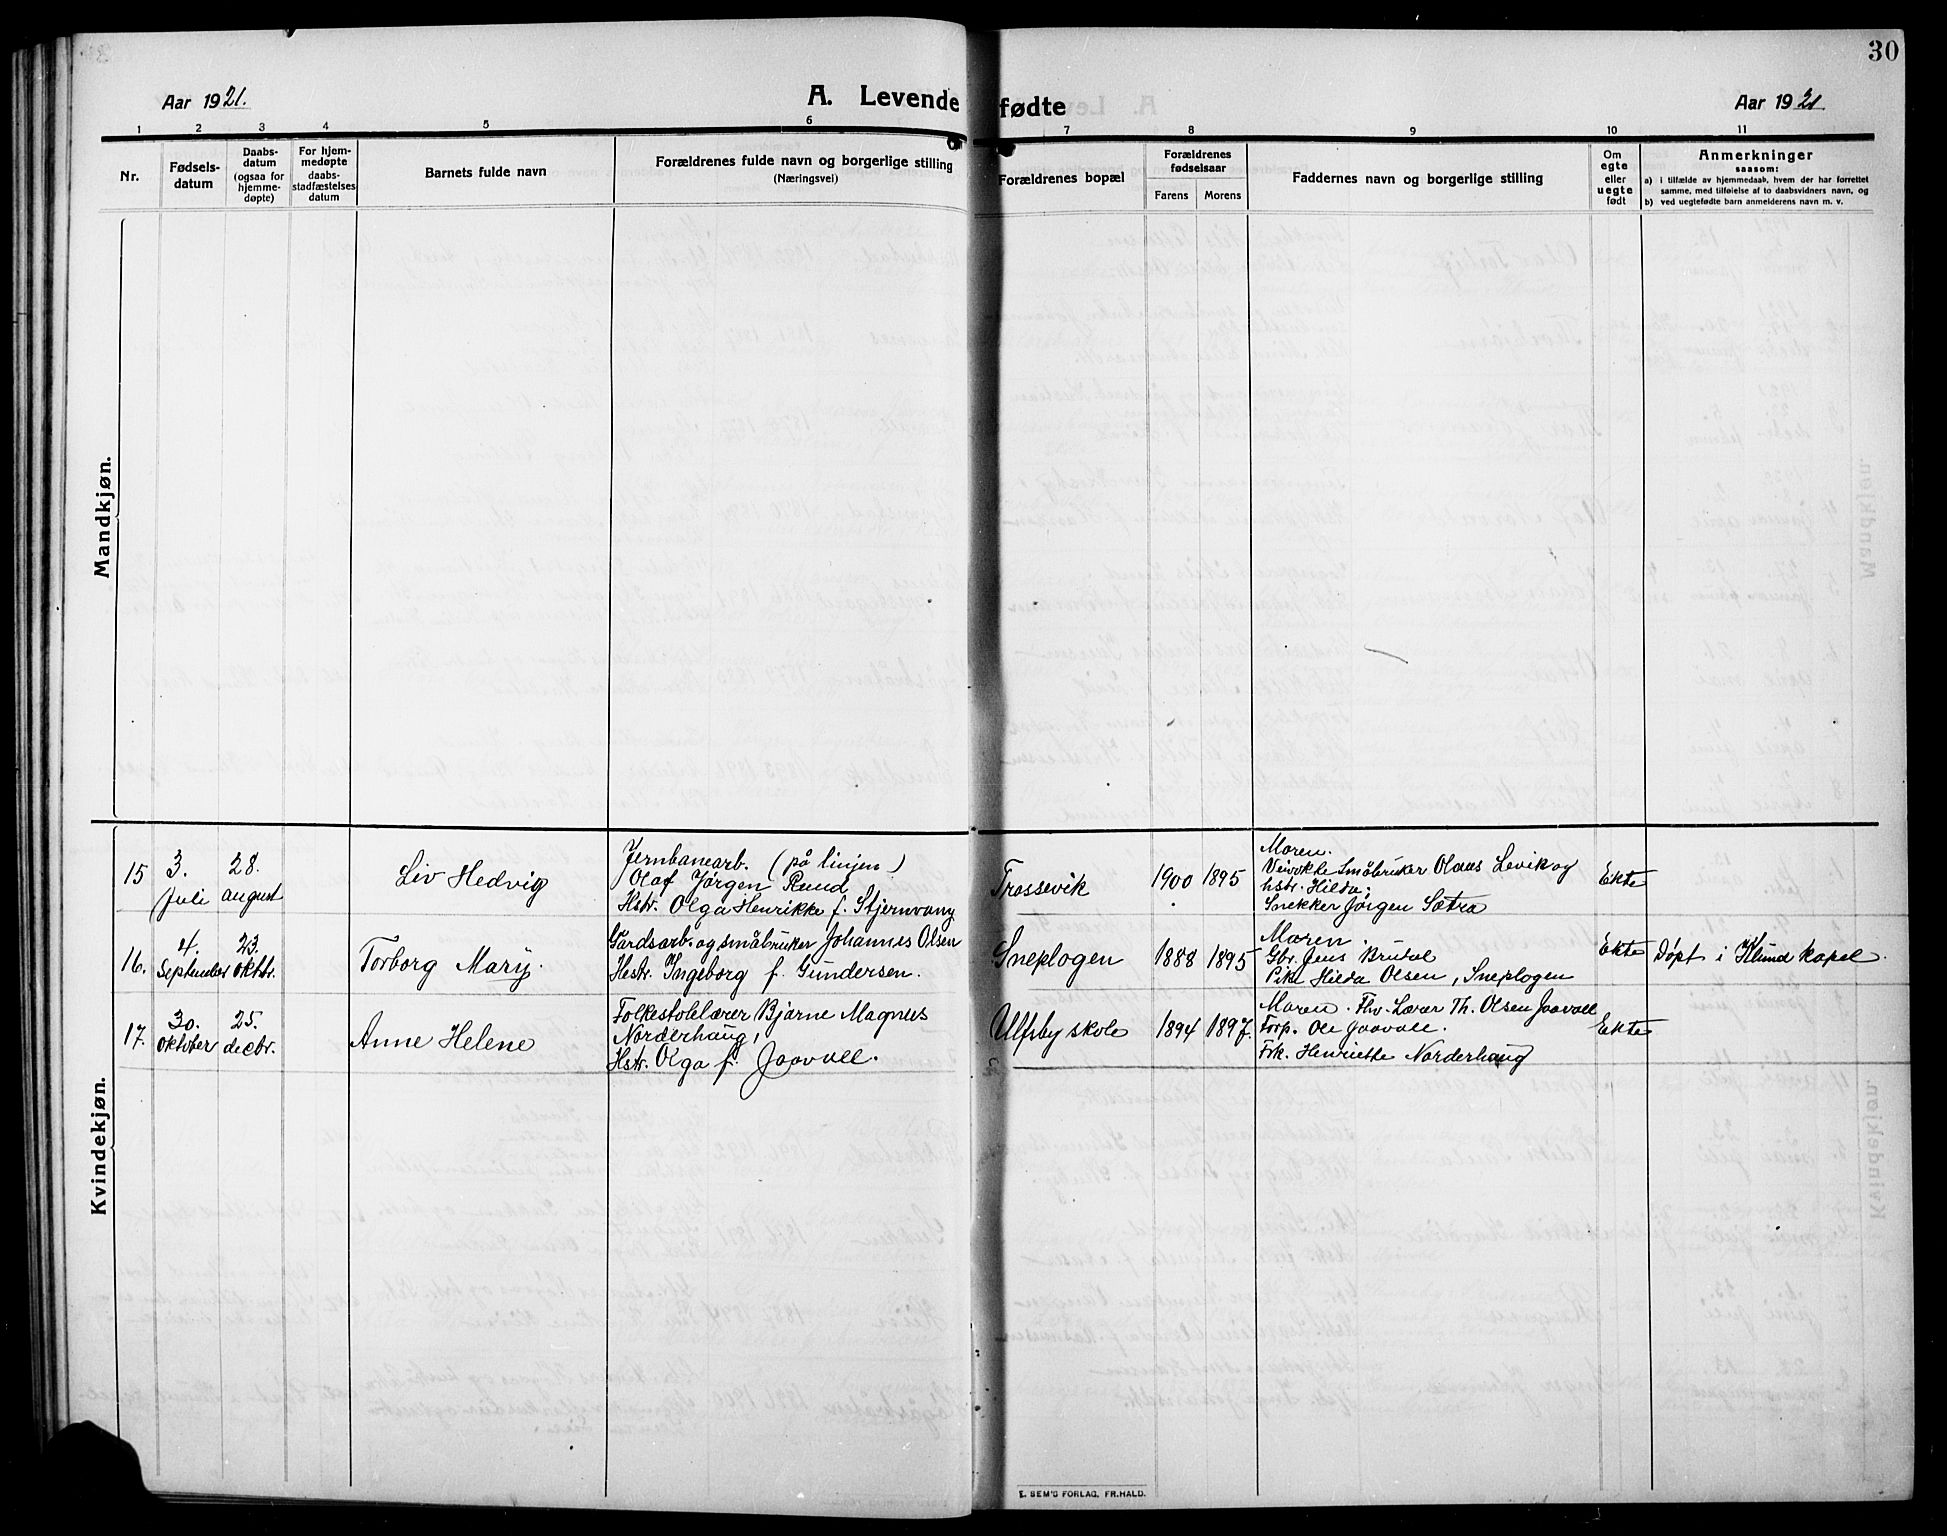 30
Aar 1921.
A. Levende
fødte
Aar 1921
1 2 3 4 5 6 7 8 9 10 11
Nr.
Fødsels-
datum
Daabs-
datum
(ogsaa for
hjemme-
døpte)
For hjem-
medøpte
daabs-
stadfæstelses
datum
Barnets fulde navn
Forældrenes fulde navn og borgerlige stilling
(Næringsvei)
Forældrenes bopæl
Forældrenes
fødselsaar
Farens Morens
Faddernes navn og borgerlige stilling
Om
egte
eller
uegte
født
Anmerkninger
saasom:
a) i tilfælde av hjemmedaab, hvem der har forrettet
samme, med tilføielse af to daabsvidners navn, og
b) ved uegtefødte barn anmelderens navn m. v.
Mandkjøn.
Kvindekjøn.
15
3.
Juli
28.
august
Liv Hedvig
Jernbanearb. (på linjen)
Olaf Jørgen Rund
Hstr. Olga Henrikke f. Stjernvang
Trossevik
1900 1895
Moren.
Småbruker Olaus Levik og
hstr. Hilda.
Snekker Jørgen Sætra
Ekte
16.
4.
September
23.
oktbr.
Torborg Mary.
Gårdsarb. og småbruker Johannes Olsen
Hstr. Ingeborg f. Gundersen.
Sneplogen
1888 1895
Moren.
Gbr. Jens Brutol
Pike Hilda Olsen, Sneplogen
Ekte
Døpt i Klund kapel.
17.
30.
oktober
25.
decbr.
Anne Helene
Folkeskolelærer Bjarne Magnus
Norderhaug,
Hstr. Olga f. Jaavall.
Ulfsby skole
1894 1897.
Moren. Fhv. Lærer Th. Olsen Jaavall
Forp. Ole Jaavall.
Frk. Henriette Norderhaug
Ekte
E. SEM'S FORLAG, FR.HALD.